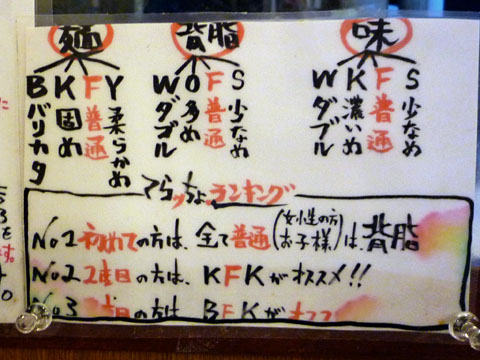 麺 背脂 味
B バリカタ
K 固め
F 普通
Y 柔らかめ
W ダブル
O 多め
F 普通
S 少なめ
W ダブル
K 濃いめ
F 普通
S 少なめ
てらっちょランキング
No1 初めての方は、全て普通(女性の方 お子様)は、背脂
No2 2度目の方は、KFKがオススメ!!
No3 の方は、BFKが